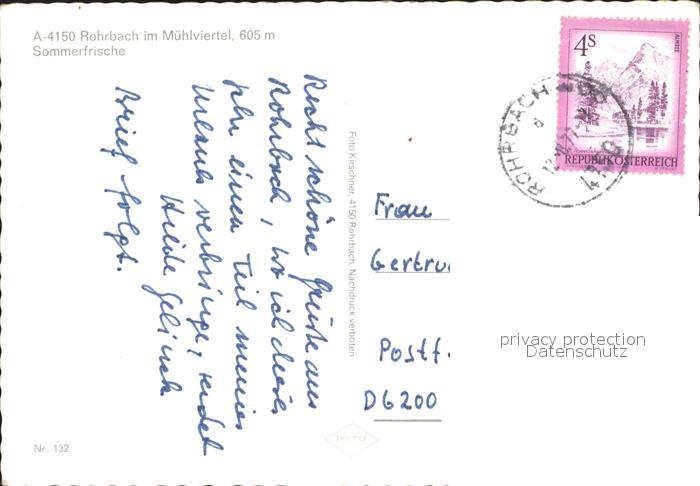 A-4150 Rohrbach im Mühlviertel, 605 m
Sommerfrische
4S
ALMSEE
REPUBLIK ÖSTERREICH
ROHRBACH
4150
Recht schöne Grüße aus
Rohrbach, wo ich dieses
Jahr einen Teil meines
Urlaubs verbringe, sendet
Hilde
Brief folgt.
Foto Kirschner, 4150 Rohrbach, Nachdruck verboten
Frau
Gertru
Postf.
D6200
privacy protection
Datenschutz
Nr. 132